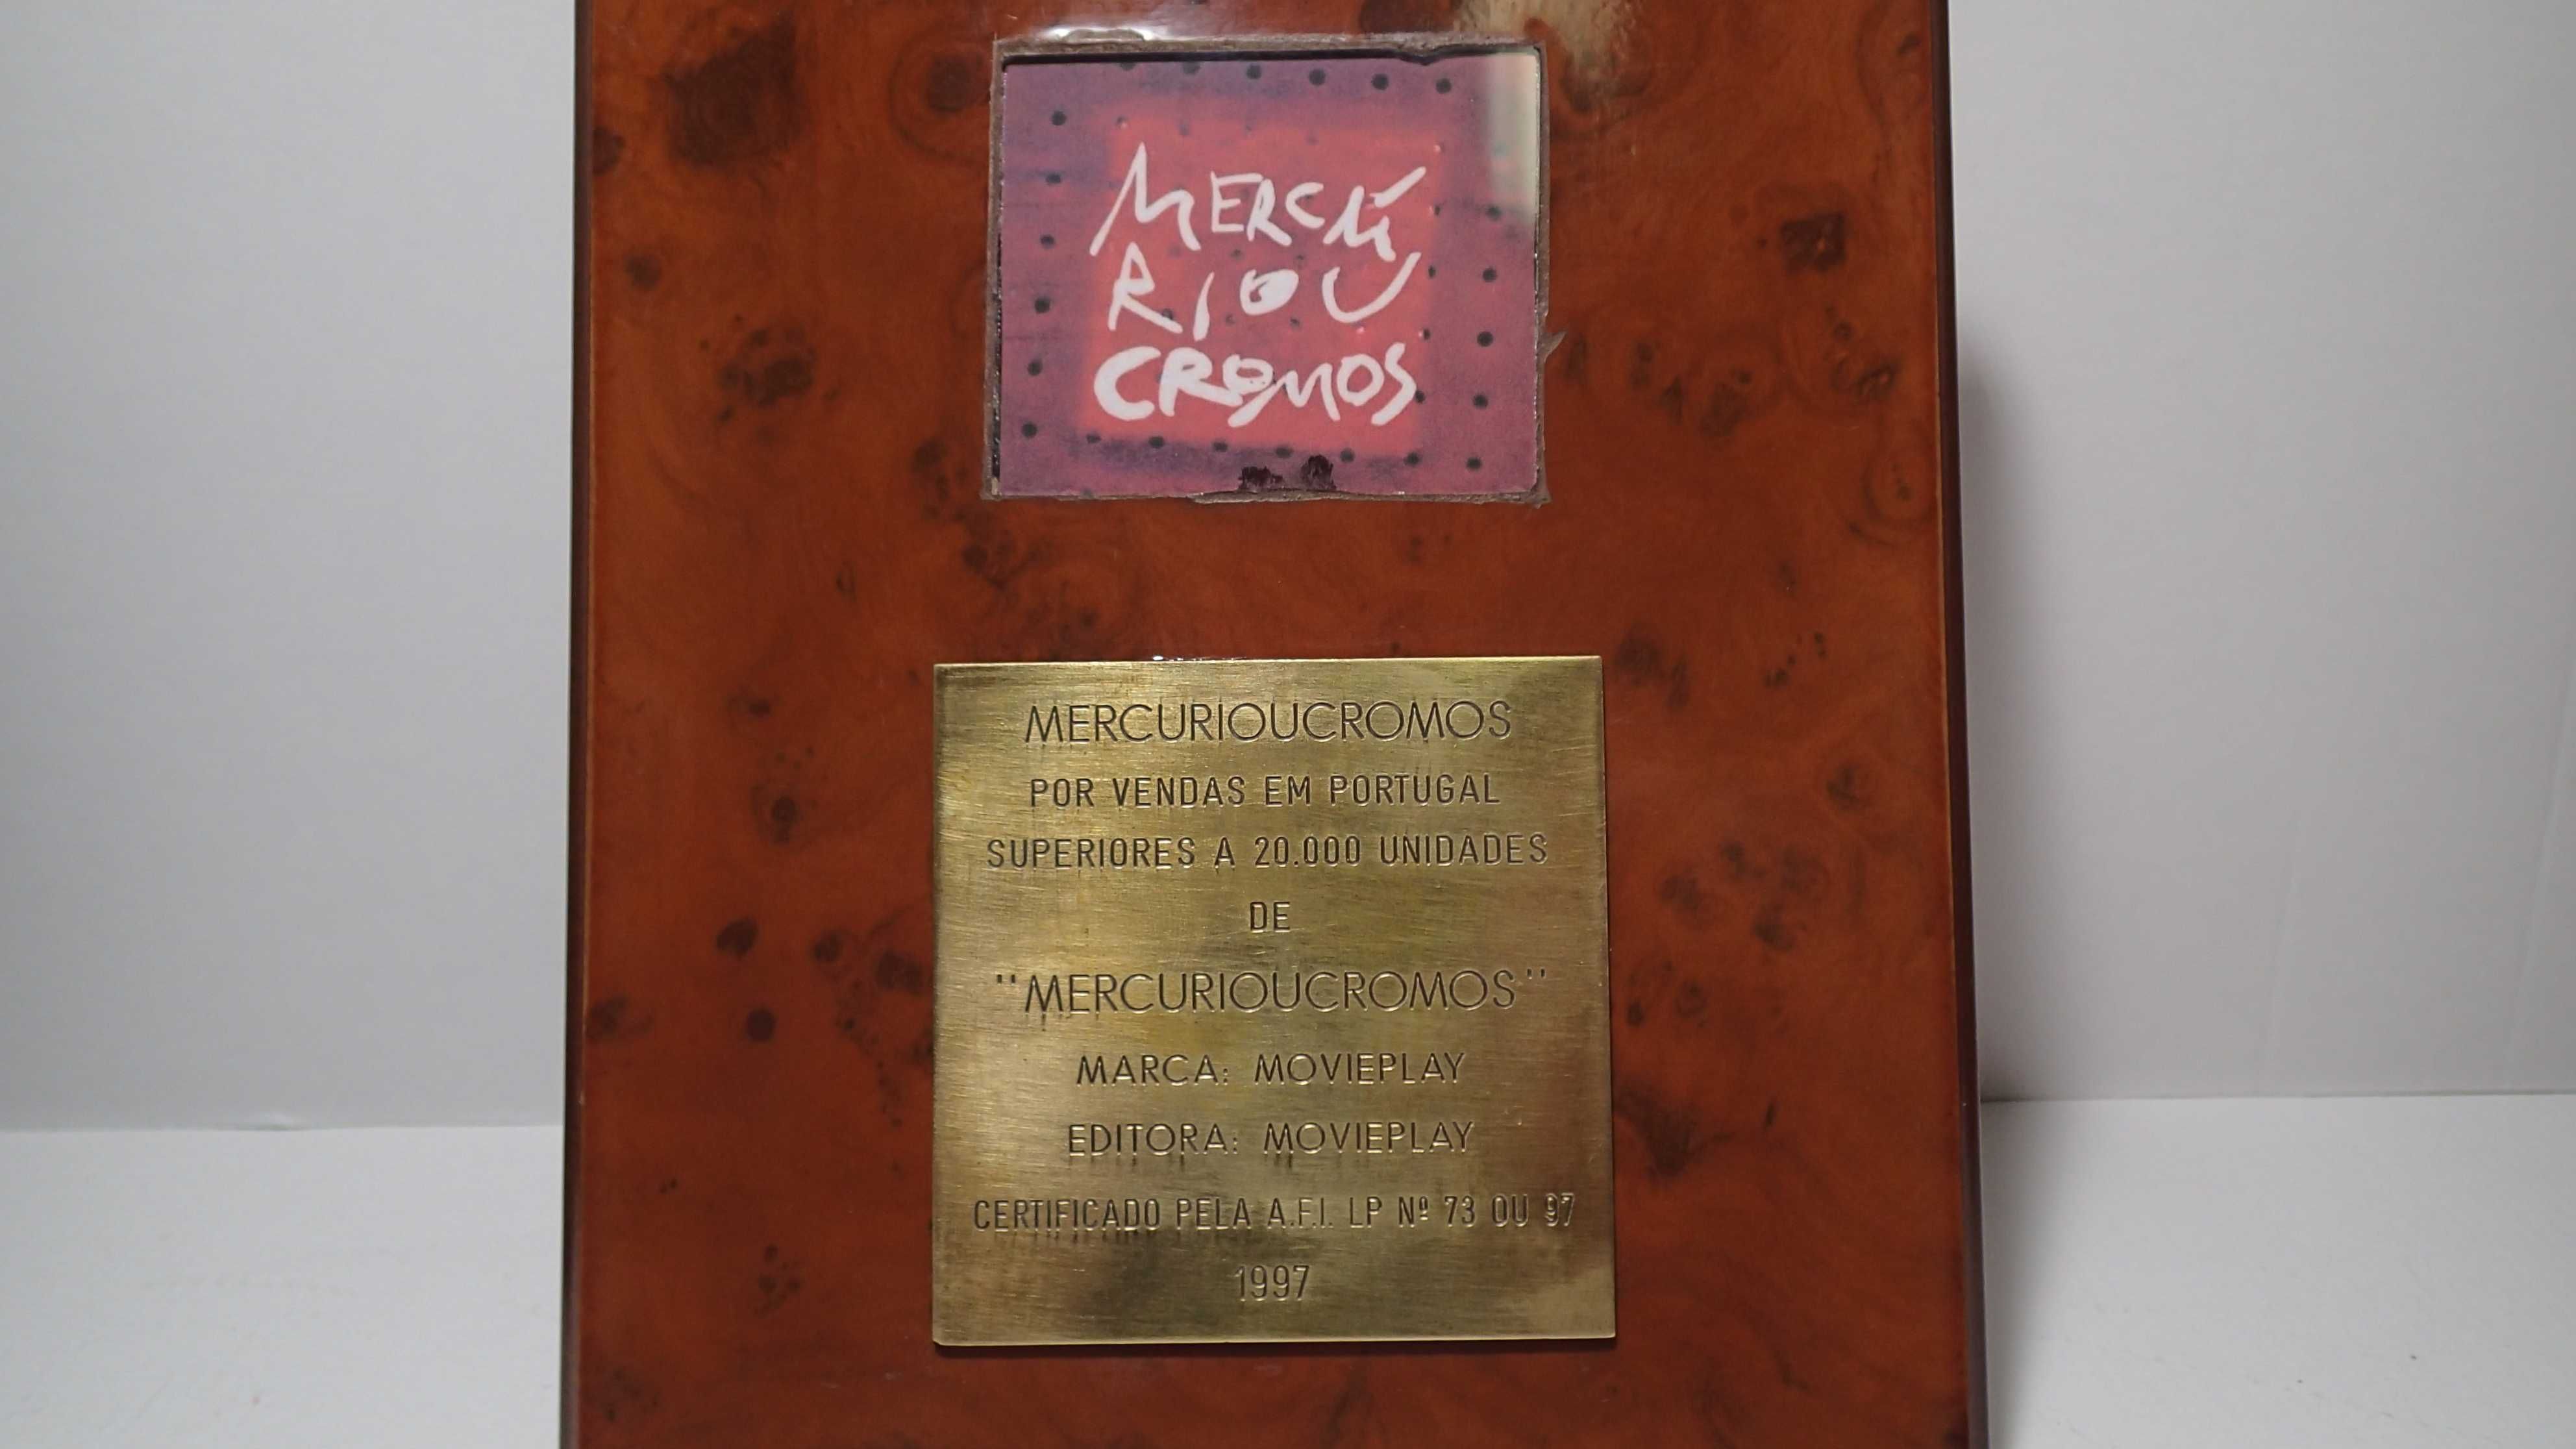 MERCÚ
RIOU
CROMOS
MERCURIOUCROMOS
POR VENDAS EM PORTUGAL
SUPERIORES A 20.000 UNIDADES
DE
"MERCURIOUCROMOS"
MARCA: MOVIEPLAY
EDITORA: MOVIEPLAY
CERTIFICADO PELA A.F.I. LP Nº 73 OU 97
1997